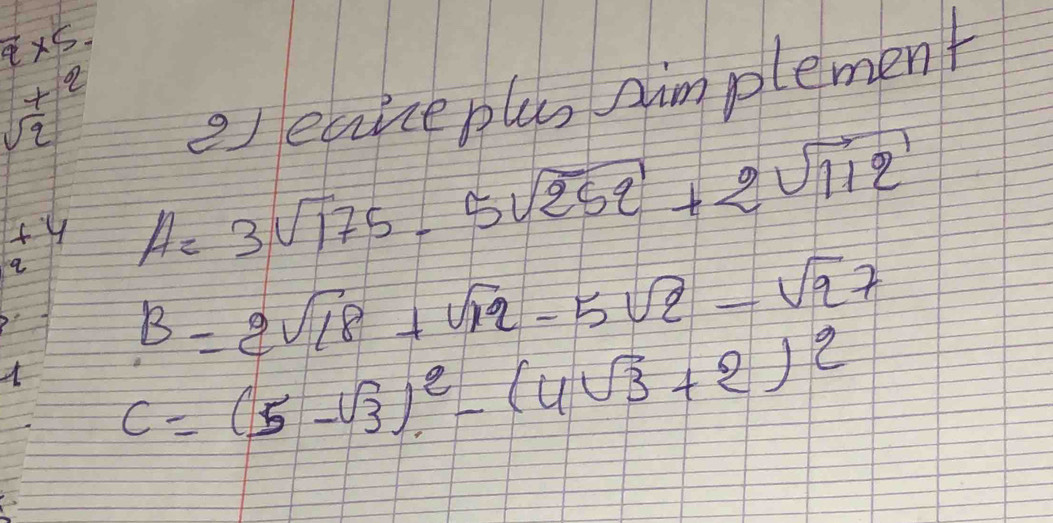 2) ecrire plus simplement
A = 3√175 - 5√252 + 2√112
B = 2√18 + √12 - 5√2 - √27
C = (5 - √3)² - (4√3 + 2)²